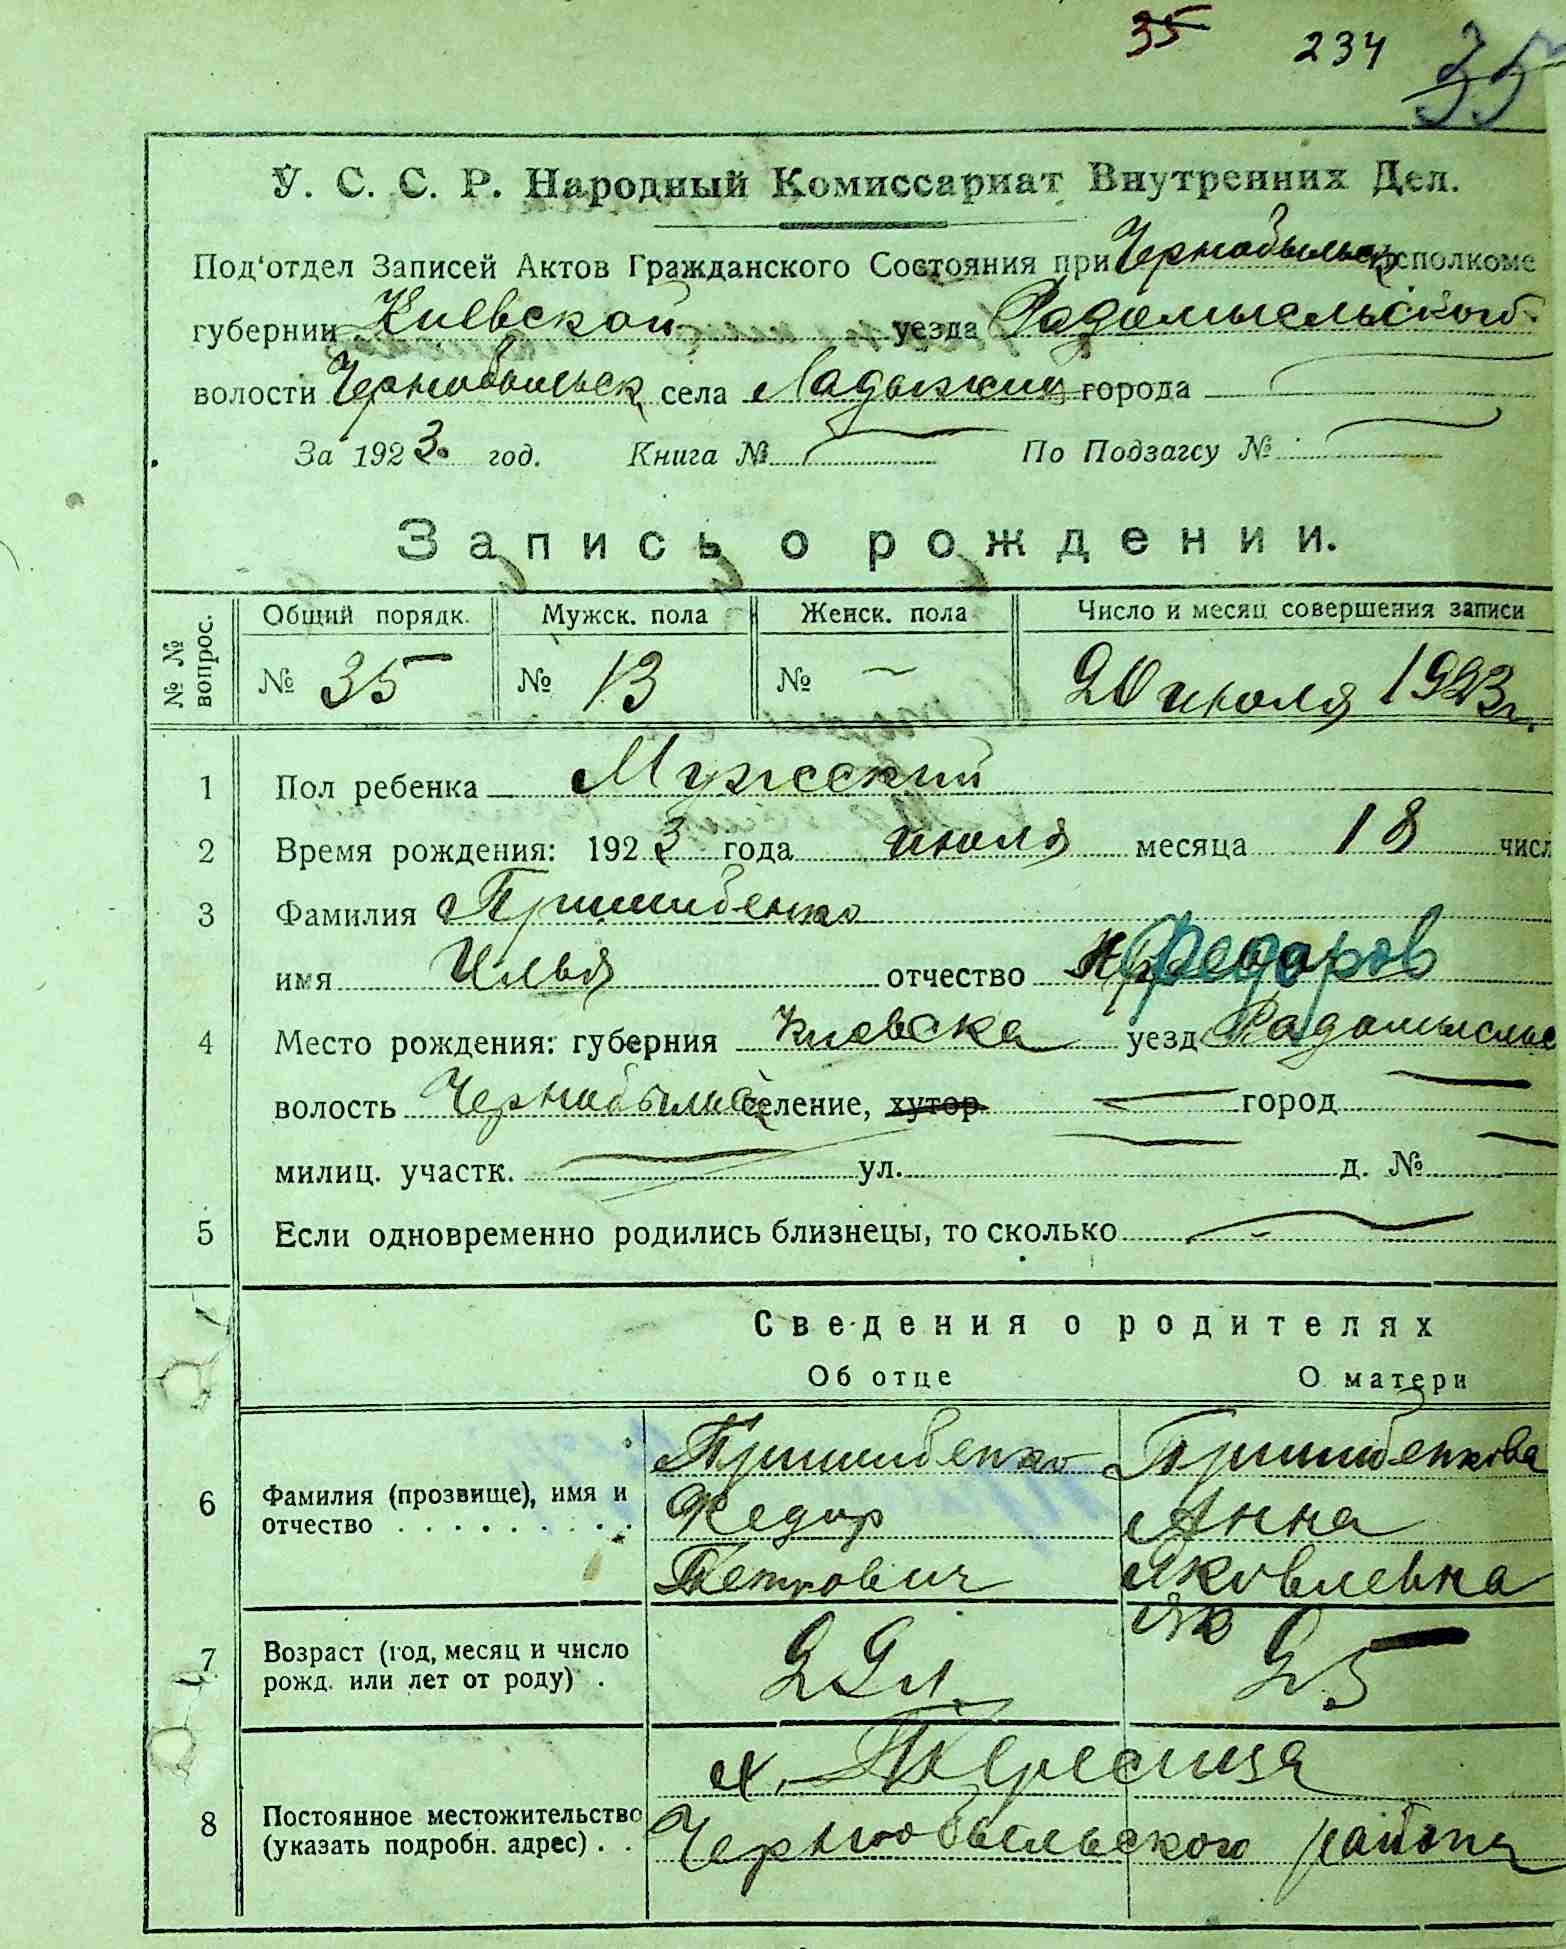 35 234 35
У. С. С. Р. Народный Комиссариат Внутренних Дел.
Под'отдел Записей Актов Гражданского Состояния при Чернобыльск исполкоме
губернии Киевской уезда Радомысльского
волости Чернобыльск села Ладыжичи города
За 1923 год. Книга № По Подзагсу №
Запись о рождении.
№ № вопрос.
Общий порядк. Мужск. пола Женск. пола Число и месяц совершения записи
№ 35 № 13 № – 20 июля 1923 г.
1 Пол ребенка Мужеский
2 Время рождения: 1923 года июля месяца 18 числ
3 Фамилия Пришибенко
имя Илья отчество Федоров
4 Место рождения: губерния Киевска уезд Радомысльс
волость Чернобыльс селение, хутор город
милиц. участк. ул. д. №
5 Если одновременно родились близнецы, то сколько
Сведения о родителях
Об отце О матери
6 Фамилия (прозвище), имя и отчество
Пришибенко Пришибенкова
Федир Анна
Петрович Яковлевна
Як
7 Возраст (год, месяц и число рожд. или лет от роду)
22 л. 25
8 Постоянное местожительство (указать подробн. адрес)
х.
Чернобыльского района